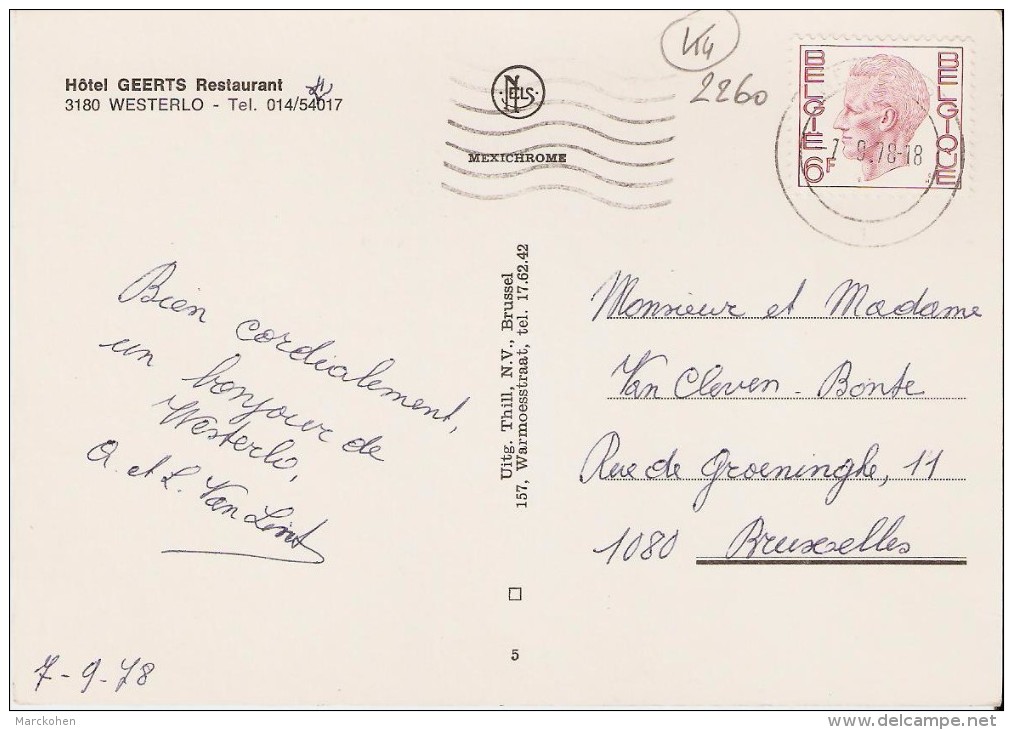 Hôtel GEERTS Restaurant
3180 WESTERLO - Tel. 014/54017
NELS
MEXICHROME
2260
BELGIE
6F
BELGIQUE
-7-9.78-18
Bien cordialement,
un bonjour de
Westerlo,
A. et L. Van Lint
7-9-78
Uitg. Thill, N.V., Brussel
157, Warmoesstraat, tel. 17.62.42
5
Monsieur et Madame
Van Cleven - Bonte
Rue de Groeninghe, 11
1080 Bruxelles
Marckohen
www.delcampe.net